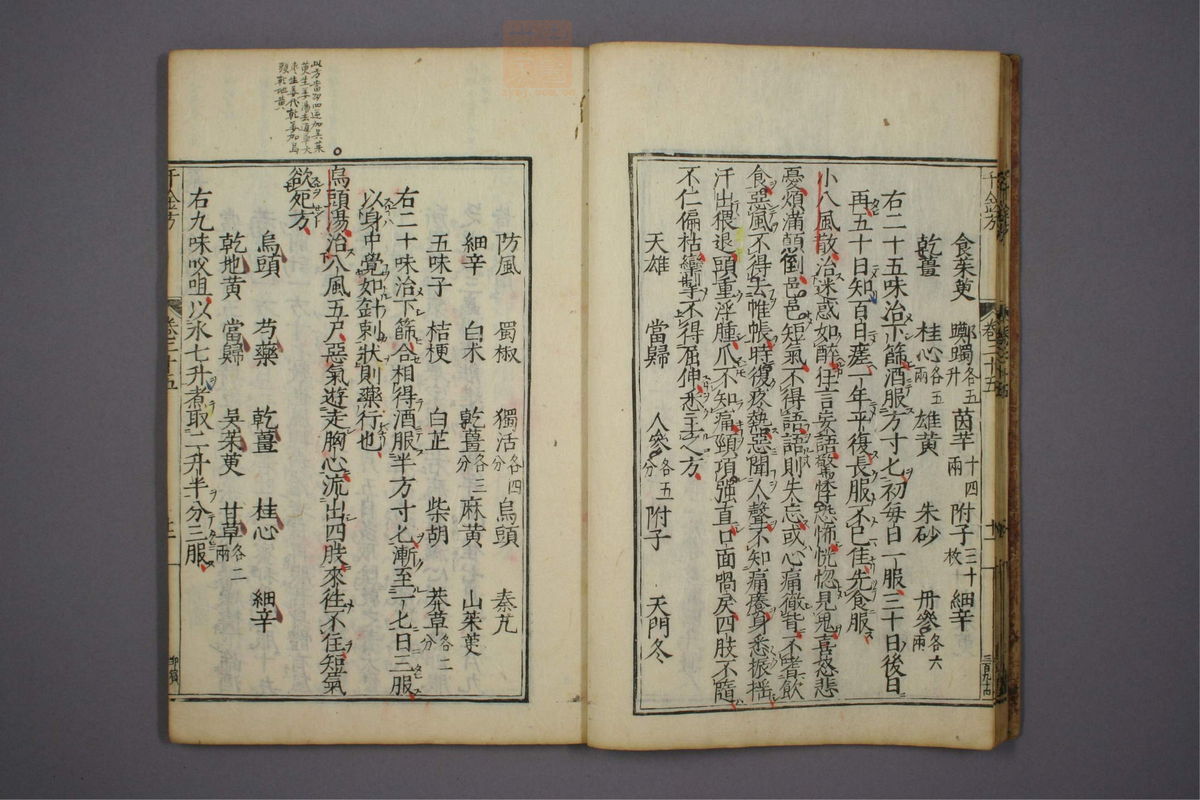 千金方
卷二十五
食茱萸 躑躅各五升 茵芋十四兩 附子三十枚 細辛
乾薑 桂心各五兩 雄黃 朱砂 丹參各六兩
右二十五味治下篩酒服方寸匕初每日一服三十日後日
再五十日知百日瘥一年平復長服不已佳先食服
小八風散治迷惑如醉狂言妄語驚悸恐怖恍惚見鬼喜怒悲
憂煩滿顛倒邑邑短氣不得語語則失忘或心痛徹背不嗜飲
食惡風不得去帷帳時復疼熱惡聞人聲不知痛癢身悉振搖
汗出猥退頭重浮腫爪不知痛頸項強直口面喎戾四肢不隨
不仁偏枯攣掣不得屈伸悉主之方
天雄 當歸 人參各五分 附子 天門冬
防風 蜀椒 獨活各四分 烏頭 秦艽
細辛 白朮 乾薑各三分 麻黃 山茱萸
五味子 桔梗 白芷 柴胡 莽草各二分
右二十味治下篩合相得酒服半方寸匕漸至一匕日三服
以身中覺如針刺狀則藥行也
烏頭湯治八風五尸惡氣遊走胸心流出四肢來往不住短氣
欲死方
烏頭 芍藥 乾薑 桂心 細辛
乾地黃 當歸 吳茱萸 甘草各二兩
右九味㕮咀以水七升煮取二升半分三服
千金方
卷二十五